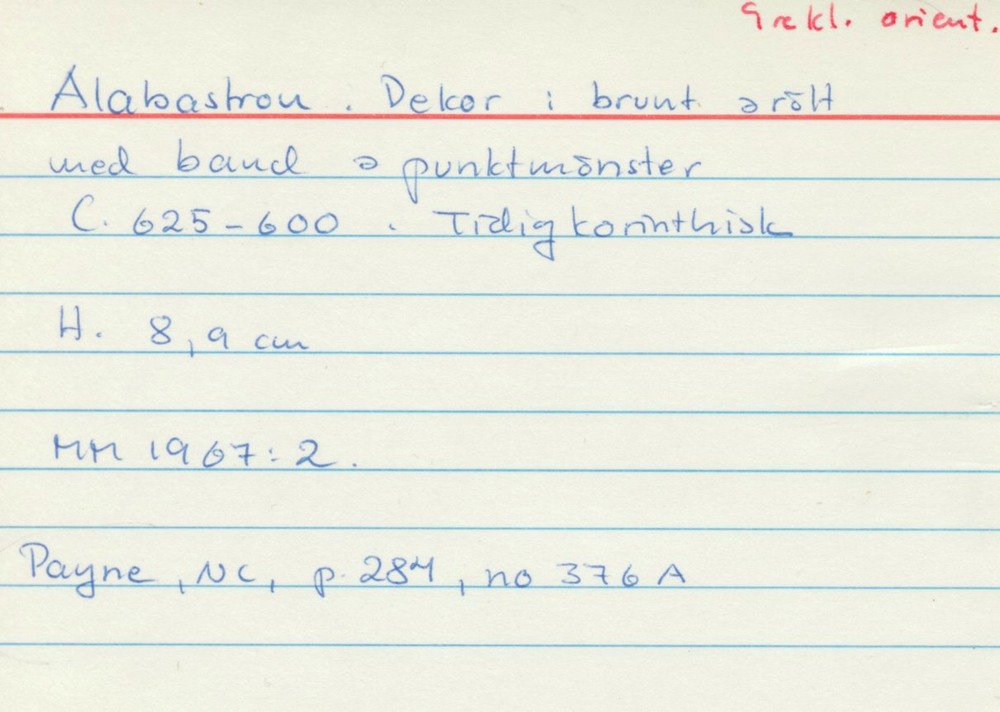 Grekl. orient.
Alabastron. Dekor i brunt o rött
med band o punktmönster
C. 625-600. Tidigkorinthisk
H. 8,9 cm
MM 1967:2.
Payne, NC, p. 284, no 376 A